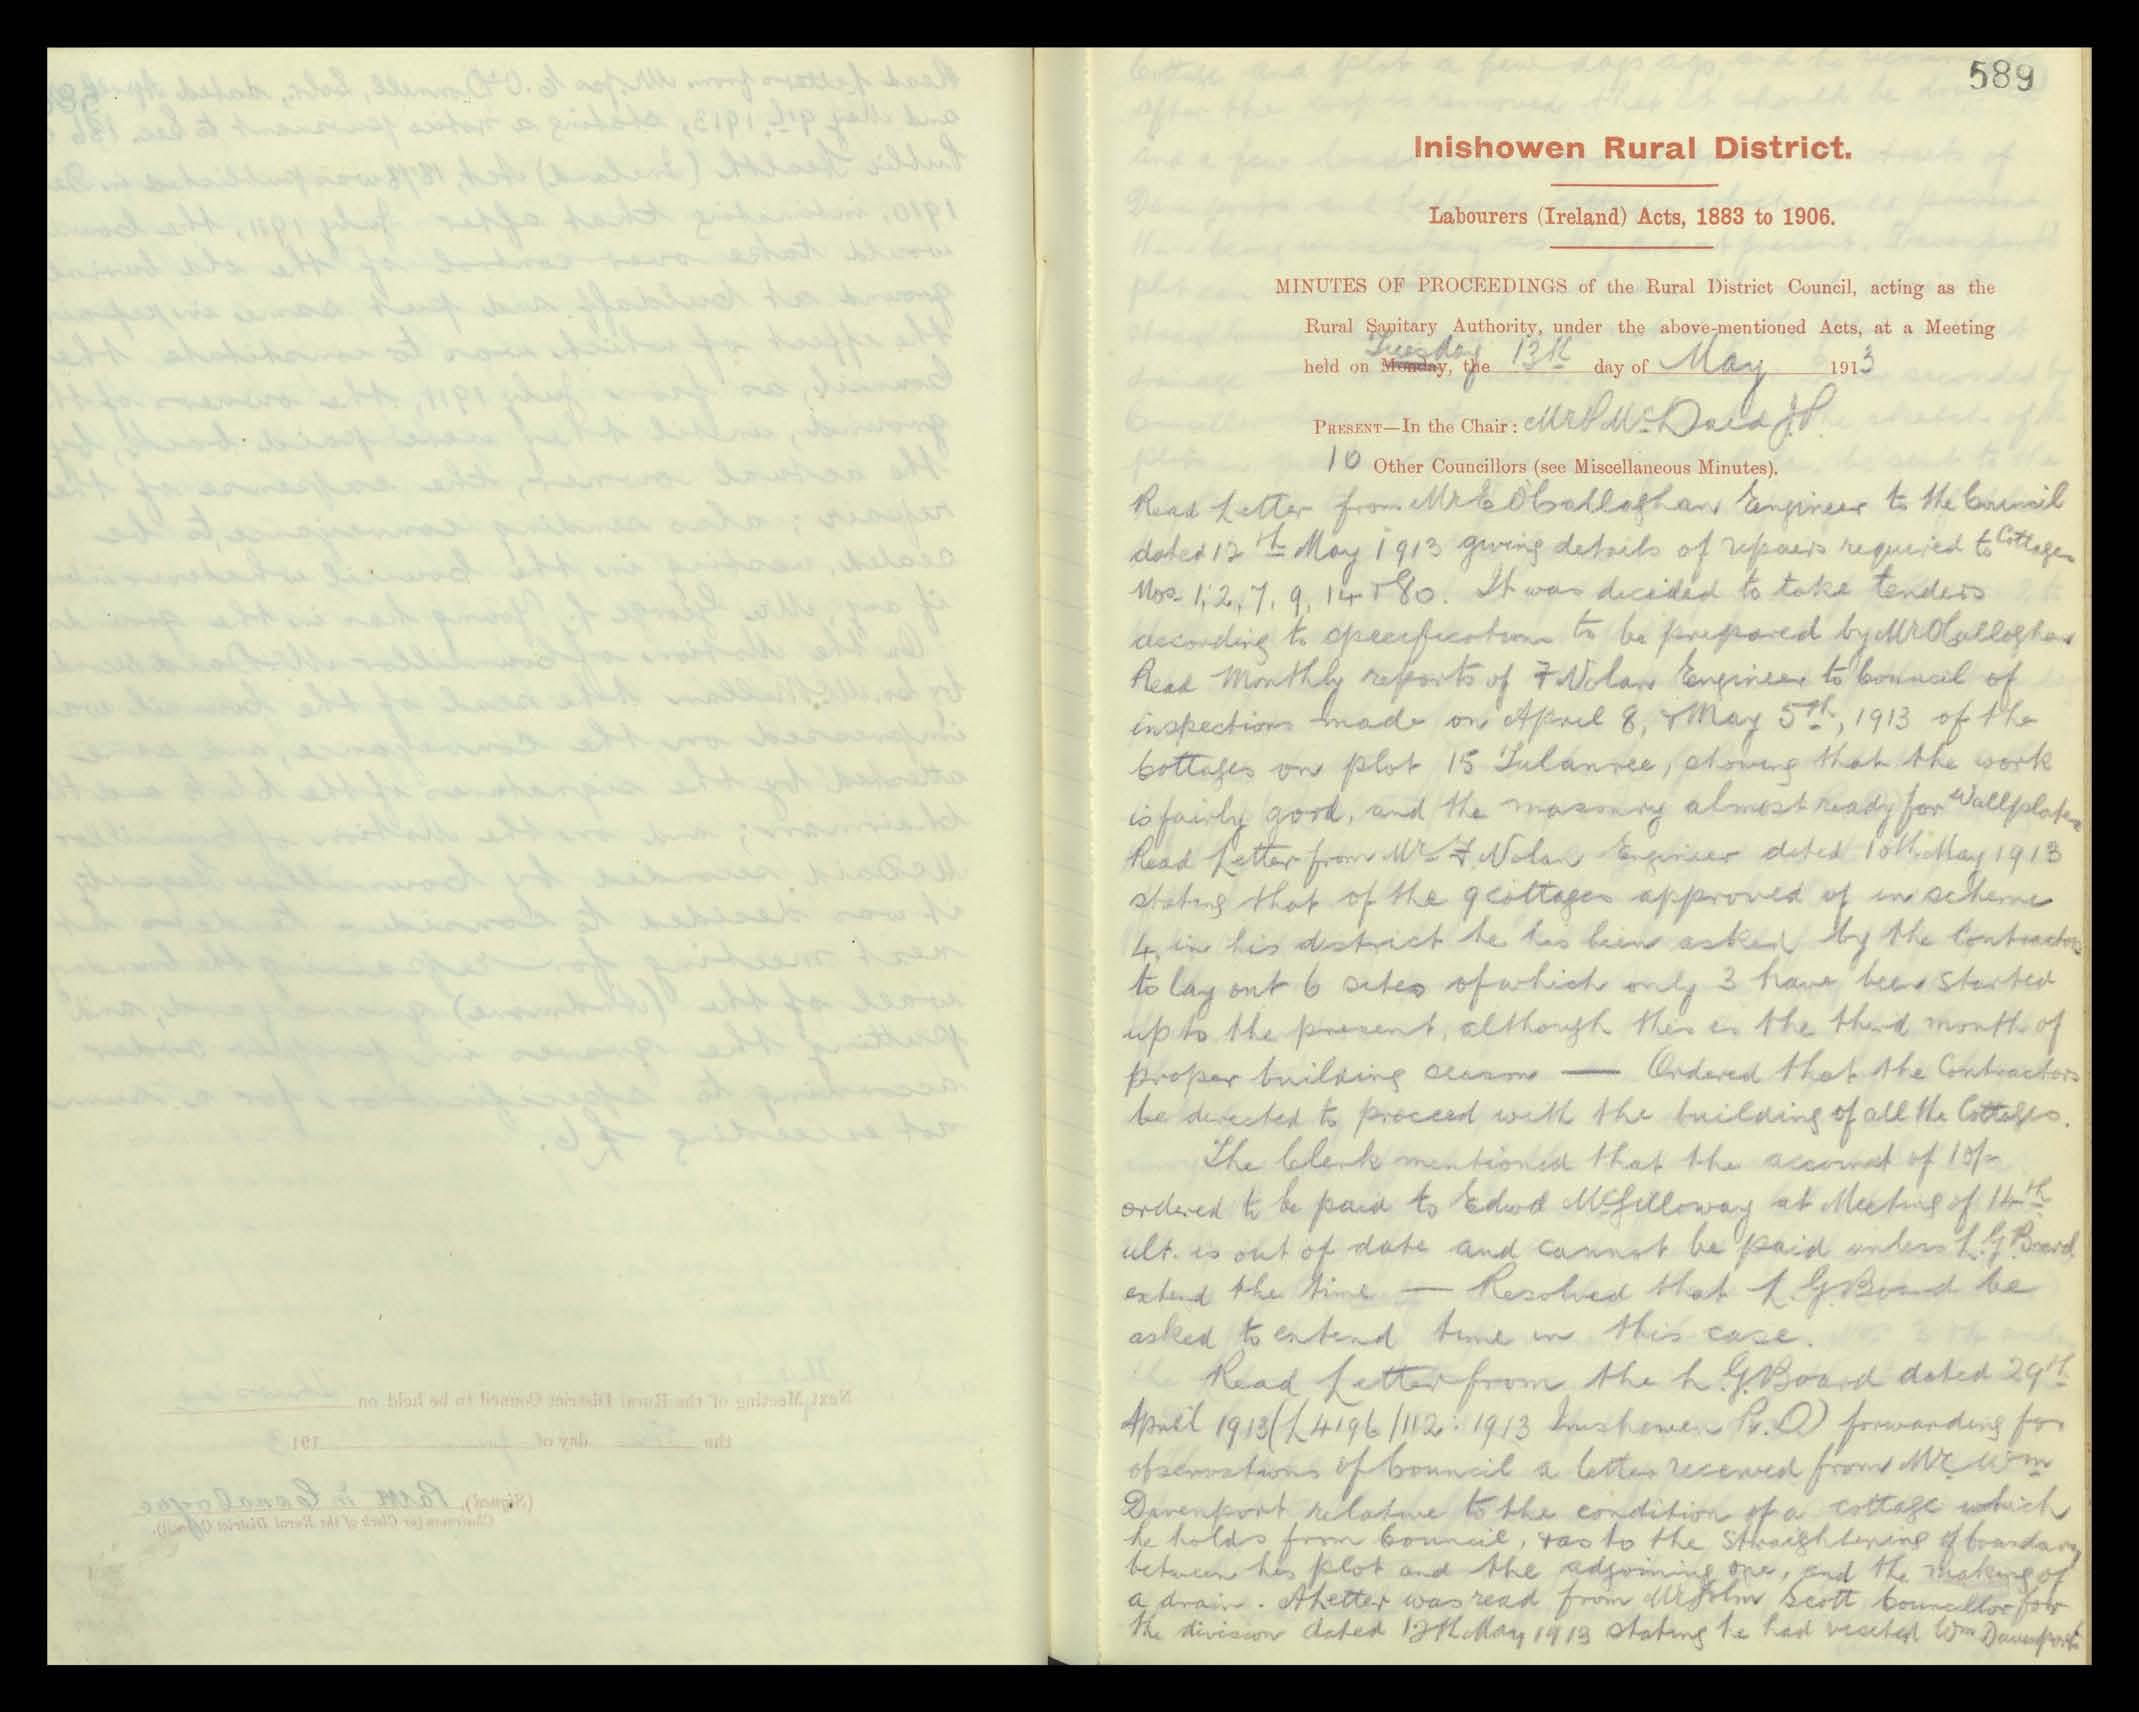 589
Inishowen Rural District.
Labourers (Ireland) Acts, 1883 to 1906.
MINUTES OF PROCEEDINGS of the Rural District Council, acting as the
Rural Sanitary Authority, under the above-mentioned Acts, at a Meeting
held on Monday, Tuesday the 13th day of May 1913
PRESENT—In the Chair: Mr P McDaid J.P.
10 Other Councillors (see Miscellaneous Minutes).
Read Letter from Mr E O'Callaghan Engineer to the Council
dated 12th May 1913 giving details of repairs required to Cottages
Nos. 1, 2, 7, 9, 14 & 80. It was decided to take tenders
according to specification to be prepared by Mr O'Callaghan
Read Monthly reports of F Nolan Engineer to Council of
inspections made on April 8, & May 5th, 1913 of the
Cottages on plot 15 Tulanree, showing that the work
is fairly good, and the masonry almost ready for Wallplates
Read Letter from Mr F. Nolan Engineer dated 10th May 1913
stating that of the 9 cottages approved of in scheme
4, in his district he has been asked by the Contractors
to lay out 6 sites of which only 3 have been started
up to the present, although this is the third month of
proper building season — Ordered that the Contractors
be directed to proceed with the building of all the Cottages.
The Clerk mentioned that the account of 10/-
ordered to be paid to Edwd McGilloway at Meeting of 14th
ult. is out of date and cannot be paid unless L.G Board
extend the time — Resolved that L.G.Board be
asked to extend time in this case.
Read Letter from the L.G.Board dated 29th
April 1913 (L4196/112: 1913 Inishowen R.D) forwarding for
observations of Council a letter received from Mr. Wm
Davenport relative to the condition of a cottage which
he holds from Council, & as to the straightening of boundary
between his plot and the adjoining one, and the making of
a drain. A letter was read from Mr John Scott Councillor for
the division dated 12th May 1913 stating he had visited Wm Davenport's